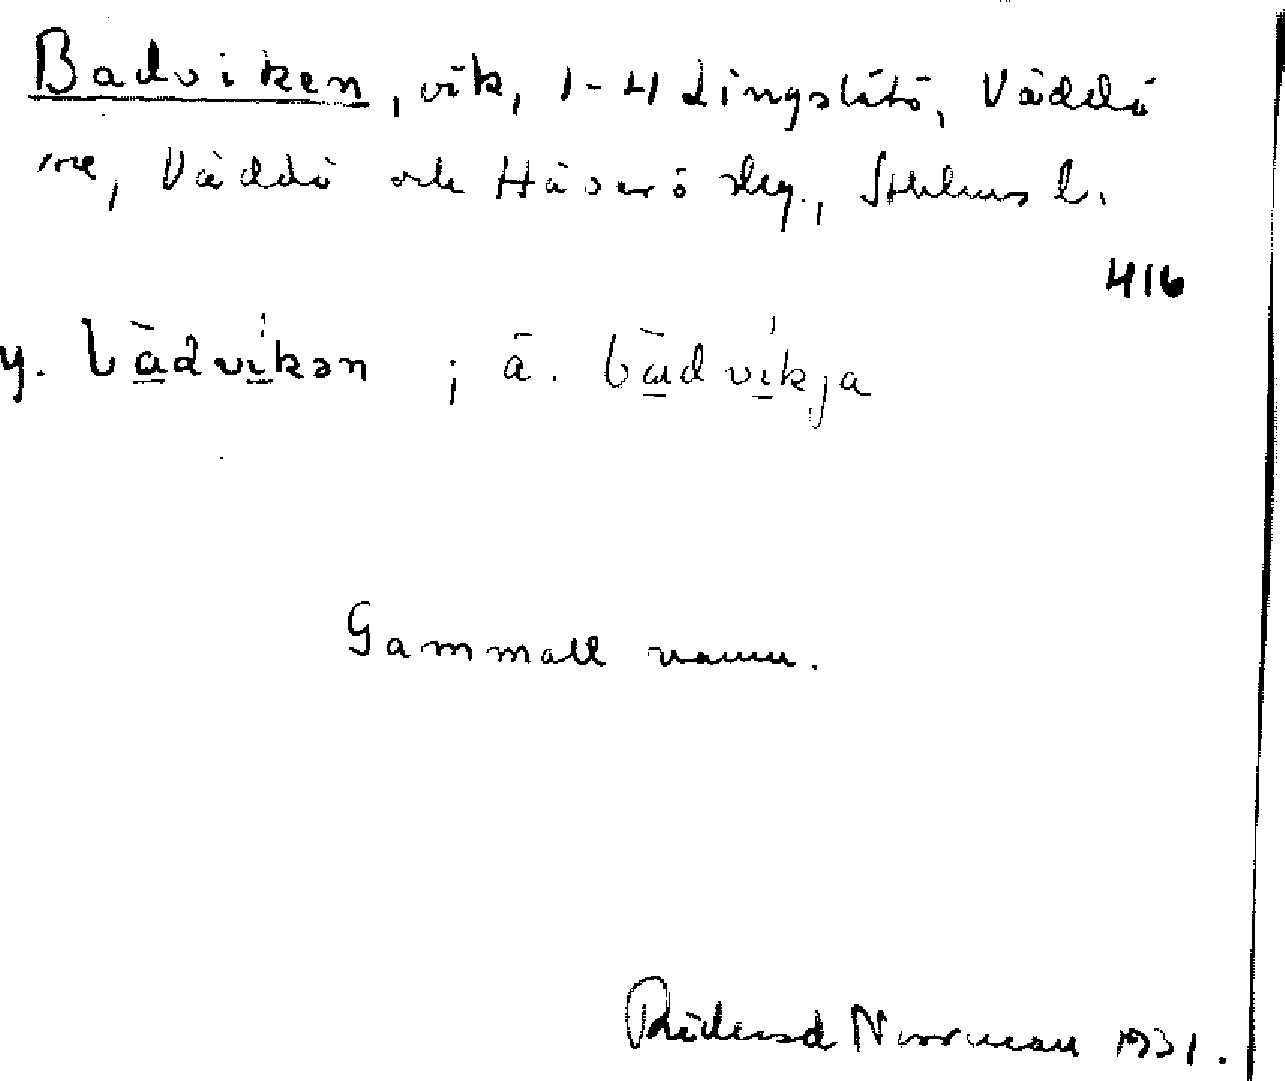 Badviken, vik, 1-4 Lingslätö, Väddö
sn, Väddö och Häverö skg., Sthlms l.
416
y. bàdvi̇̀kən ; ä. bàdvi̇̀kja
Gammalt namn.
Rickard Norrman 1931.